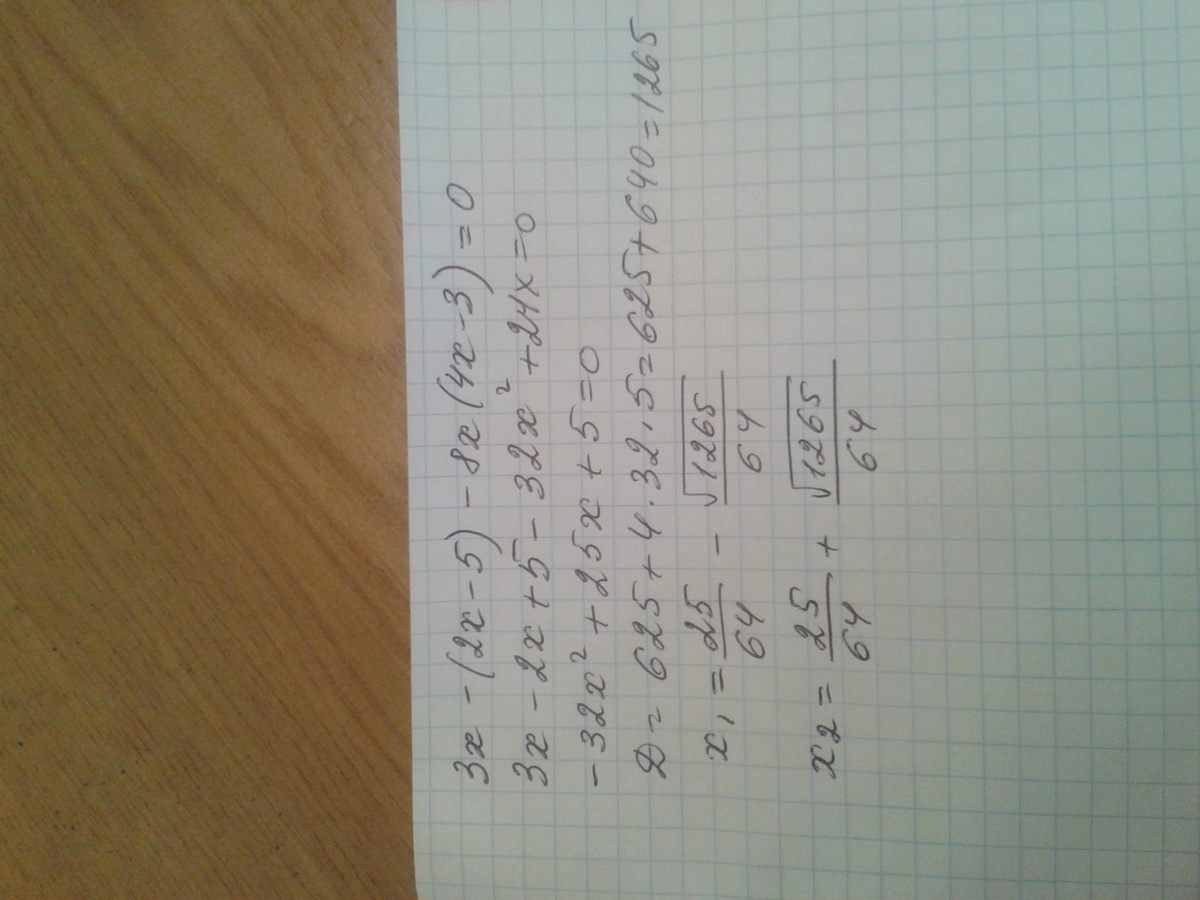 3x - (2x - 5) - 8x(4x - 3) = 0
3x - 2x + 5 - 32x² + 24x = 0
- 32x² + 25x + 5 = 0
D = 625 + 4 · 32 · 5 = 625 + 640 = 1265
x₁ = 25/64 - √1265/64
x₂ = 25/64 + √1265/64